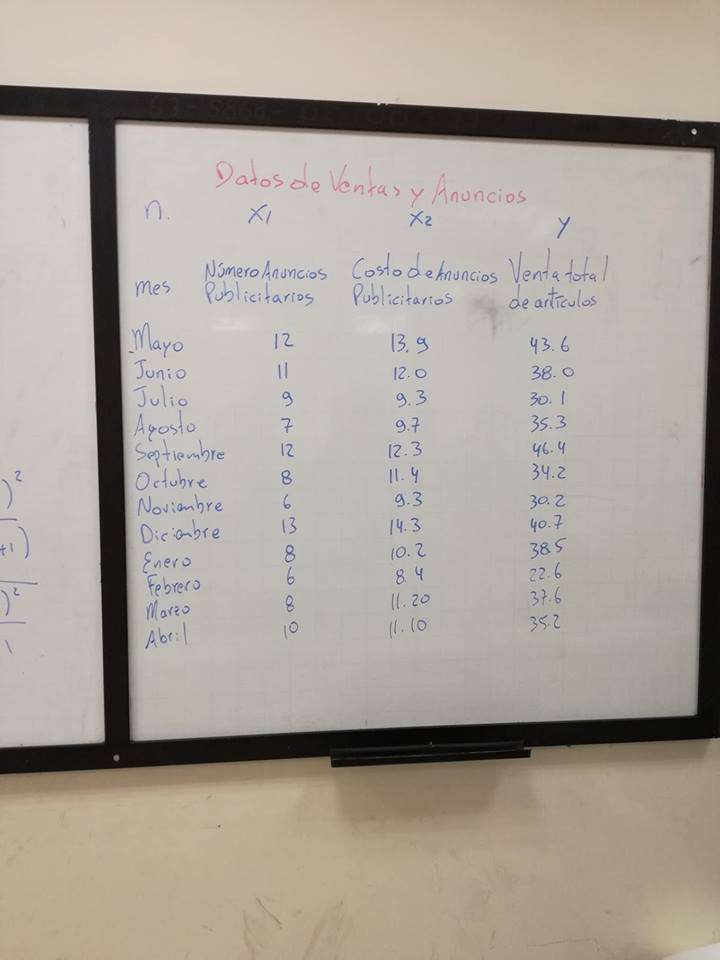 Datos de Ventas y Anuncios
n. X1 X2 y
mes Número Anuncios Publicitarios Costo de Anuncios Publicitarios Venta total de artículos
Mayo 12 13.9 43.6
Junio 11 12.0 38.0
Julio 9 9.3 30.1
Agosto 7 9.7 35.3
Septiembre 12 12.3 46.4
Octubre 8 11.4 34.2
Noviembre 6 9.3 30.2
Diciembre 13 14.3 40.7
Enero 8 10.2 38.5
Febrero 6 8.4 22.6
Marzo 8 11.20 37.6
Abril 10 11.10 35.2
)²
+1)
)²
1